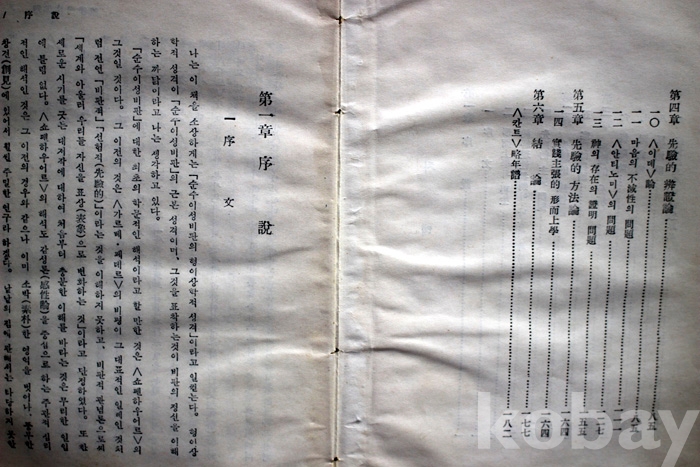 第四章 先驗的 辨證論
一〇 〈이데〉論 八五
一一 마음의 不滅性의 問題
一二 〈안티노미〉의 問題
一三 神의 存在의 證明 問題
第五章 先驗的 方法論 一五五
一四 實踐主張的 形而上學 一六四
第六章 結論
〈칸트〉略年譜 一八二
第一章 序說
一 序文
나는 이 책을 소상하게는 「순수이성비판의 형이상학적 성격」이라고 일컫는다. 형이상
학적 성격이 「순수이성비판」의 근본 성격이며, 그것을 표착하는것이 비판의 정신을 이해
하는 까닭이라고 나는 생각하고 있다.
「순수이성비판」에 대한 최초의 학문적인 해석이라고 할 만한 것은 〈쇼펜하우어르〉의
그것일 것이다. 그 이전의 것은 〈가르베・페데르〉의 비평이 그 대표적인 일례인 것처
럼 전인 「비판적」「선험적(先驗的)」이라는 것을 이해하지 못하고, 비판적 관념론으로써
「세계와 아울러 우리들 자신을 표상(表象)으로 변화하는 것」이라고 단정하였다. 또한
새로운 시기를 긋는 대저작에 대하여 처음부터 충분한 이해를 바라는 것은 무리한 일임
에 틀림 없다. 〈쇼펜하우어르〉의 해석도 감성론(感性論)을 중심으로 하는 주관적 심리
적인 해석인 것은 그 이전의 경우와 같으나 이미 소박(素朴)한 영역을 벗어나, 풍부한
창견(創見)에 있어서
序說 1
kobay